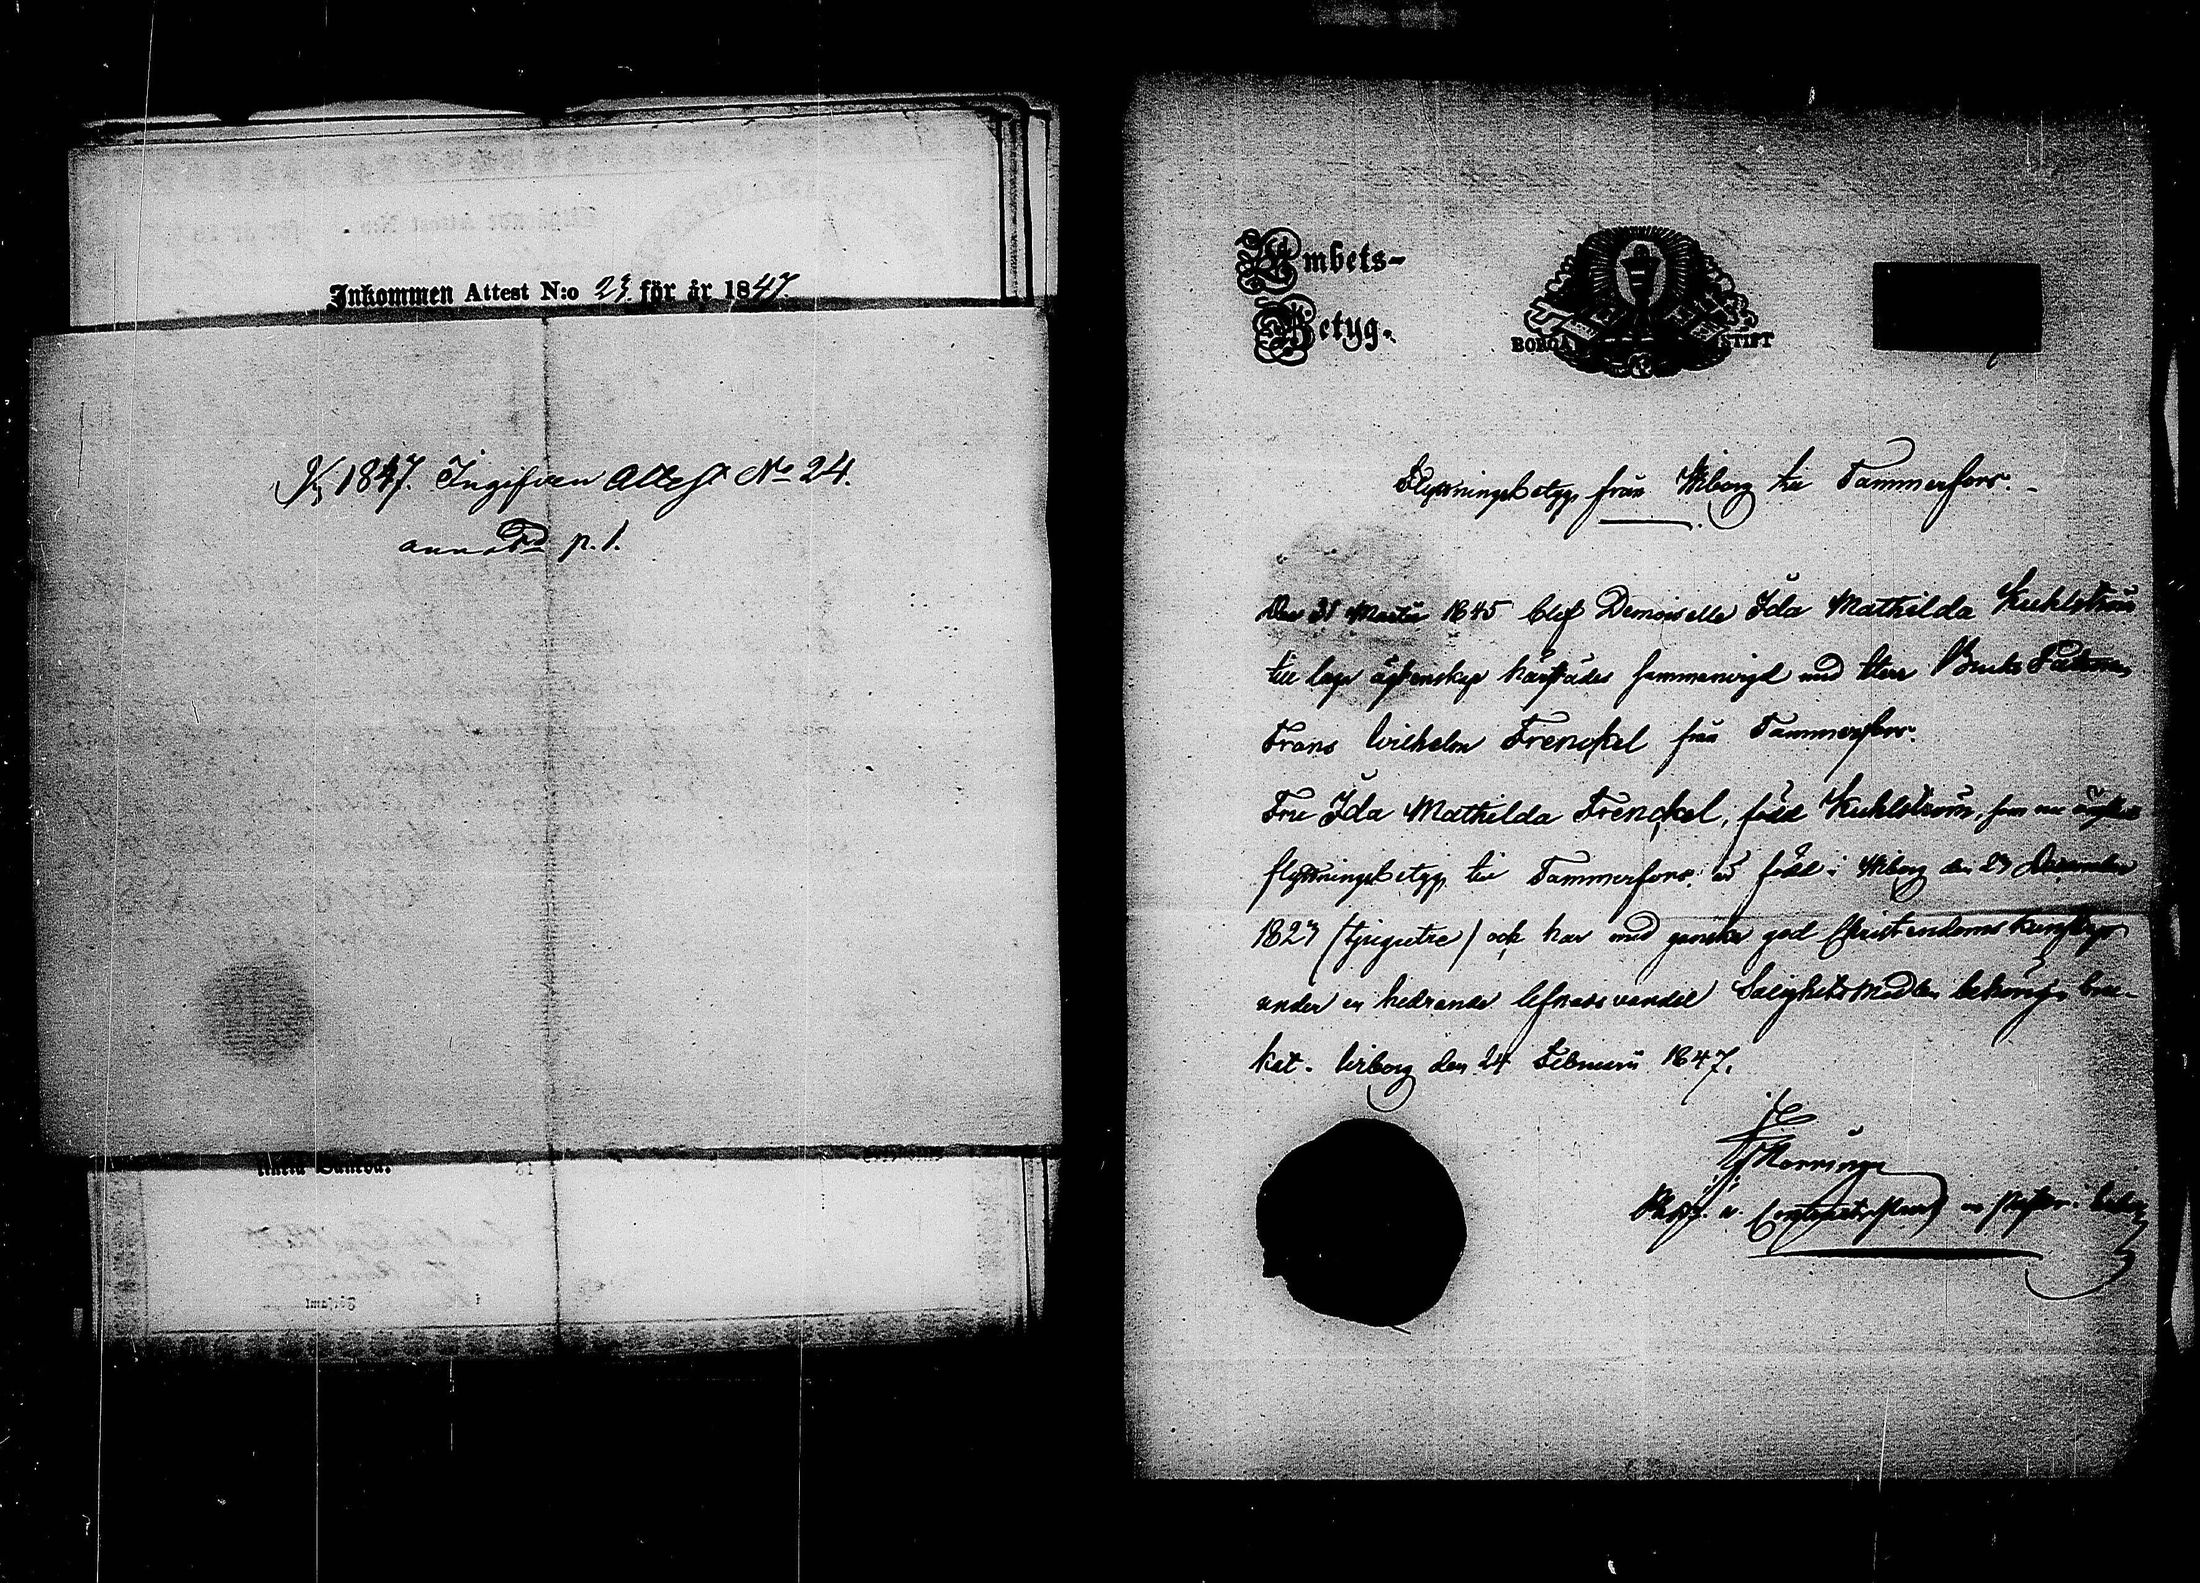 Inkommen Attest N:o 23. för år 1847.
1847. Ingifven Attest No 24.
annoterd p. 1.
Embets-
Betyg.
BORGÅ STIFT
Flyttningsbetyg från Wiborg till Tammerfors.
Den 31 Martii 1845 blef Demoiselle Ida Mathilda Kuhlström
till laga ägtenskap härstädes sammanvigd med Herr Bruks Patronen
Frans Wilhelm Frenckel från Tammerfors.
Fru Ida Mathilda Frenckel, född Kuhlström, som nu äskat
flyttningsbetyg till Tammerfors, är född i Wiborg den 23 December
1823 (tjugutre) och har med ganska god Christendoms kunskap
under en hedrande lefnadsvandel Salighets Medlen behörigen bru-
kat. Wiborg den 24 Februarii 1847.
Prost o. Contractsprost